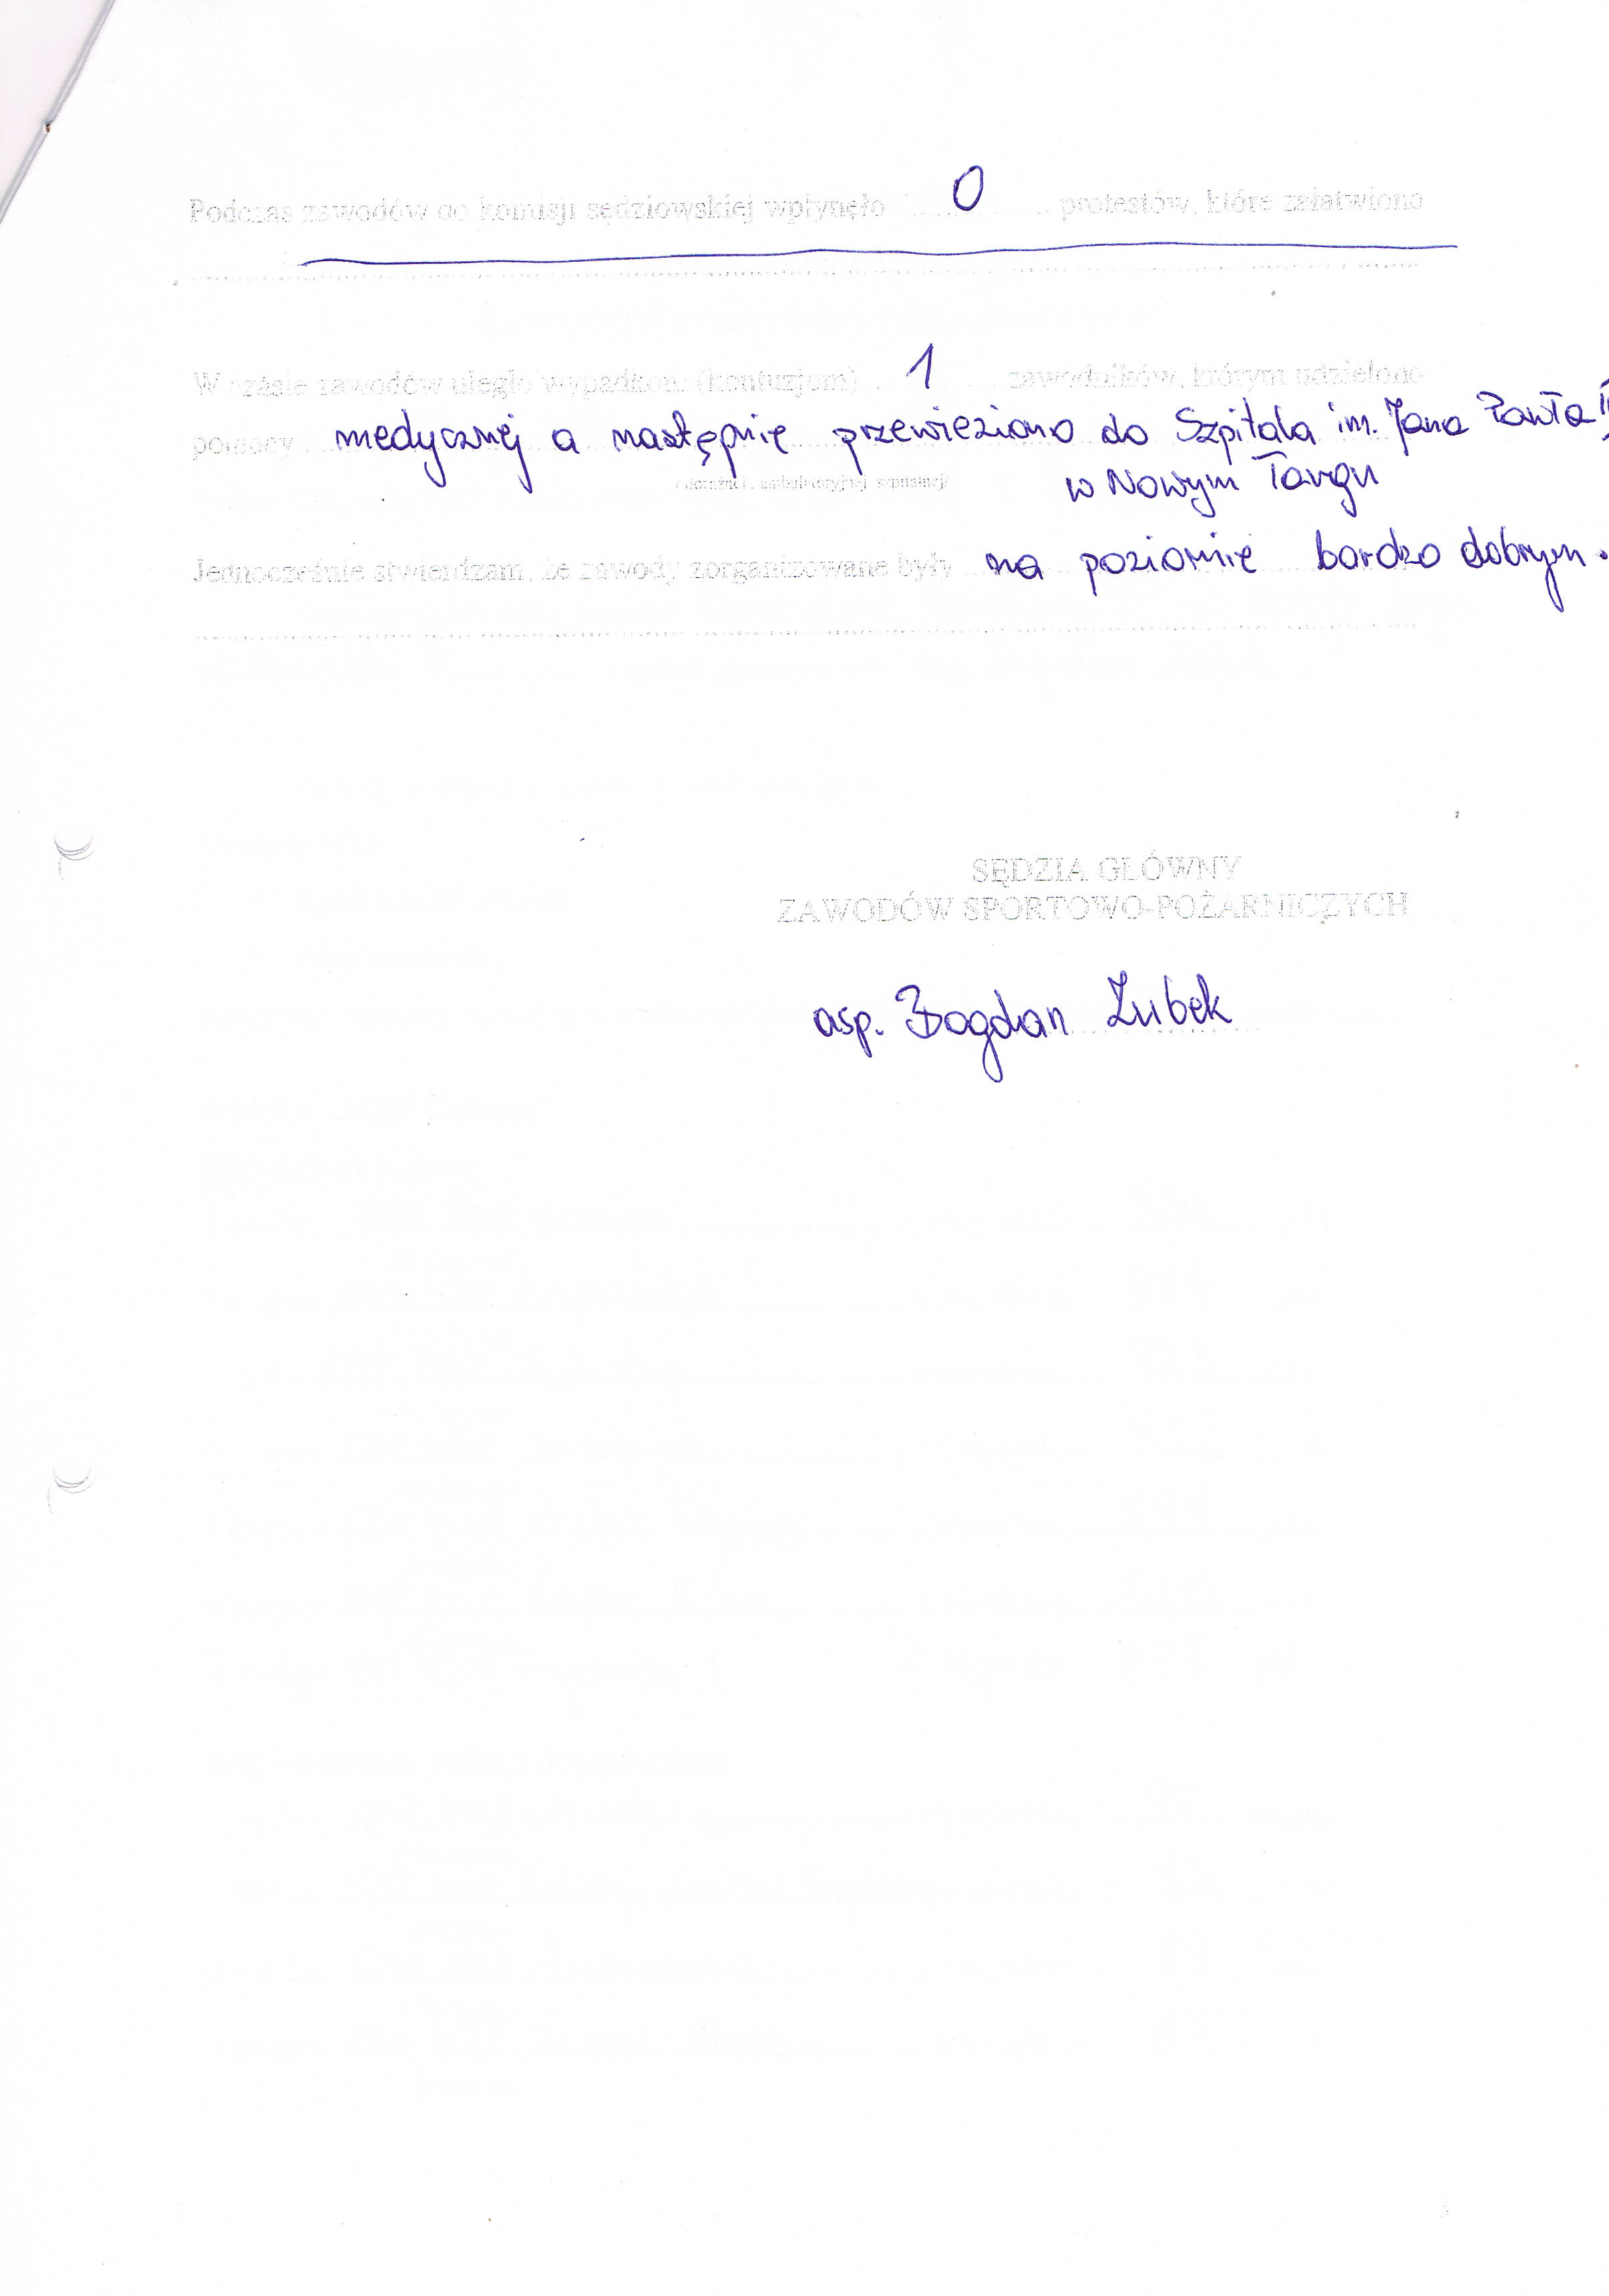 Podczas zawodów do komisji sędziowskiej wpłynęło ......0...... protestów, które załatwiono
W czasie zawodów uległo wypadkom (kontuzjom) ......1...... zawodników, którym udzielono
pomocy medycznej a następnie przewieziono do Szpitala im. Jana Pawła II
/ doraźnej, ambulatoryjnej szpitalnej/ w Nowym Targu
Jednocześnie stwierdzam, że zawody zorganizowane były na poziomie bardzo dobrym.
SĘDZIA GŁÓWNY
ZAWODÓW SPORTOWO-POŻARNICZYCH
asp. Bogdan Zubek